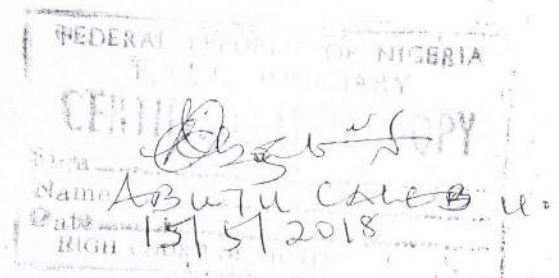 FEDERAL REPUBLIC OF NIGERIA
JUDICIARY
CERTIFIED COPY
Sign
Name ABUTU CALEB U.
Date 15/5/2018
HIGH COURT OF